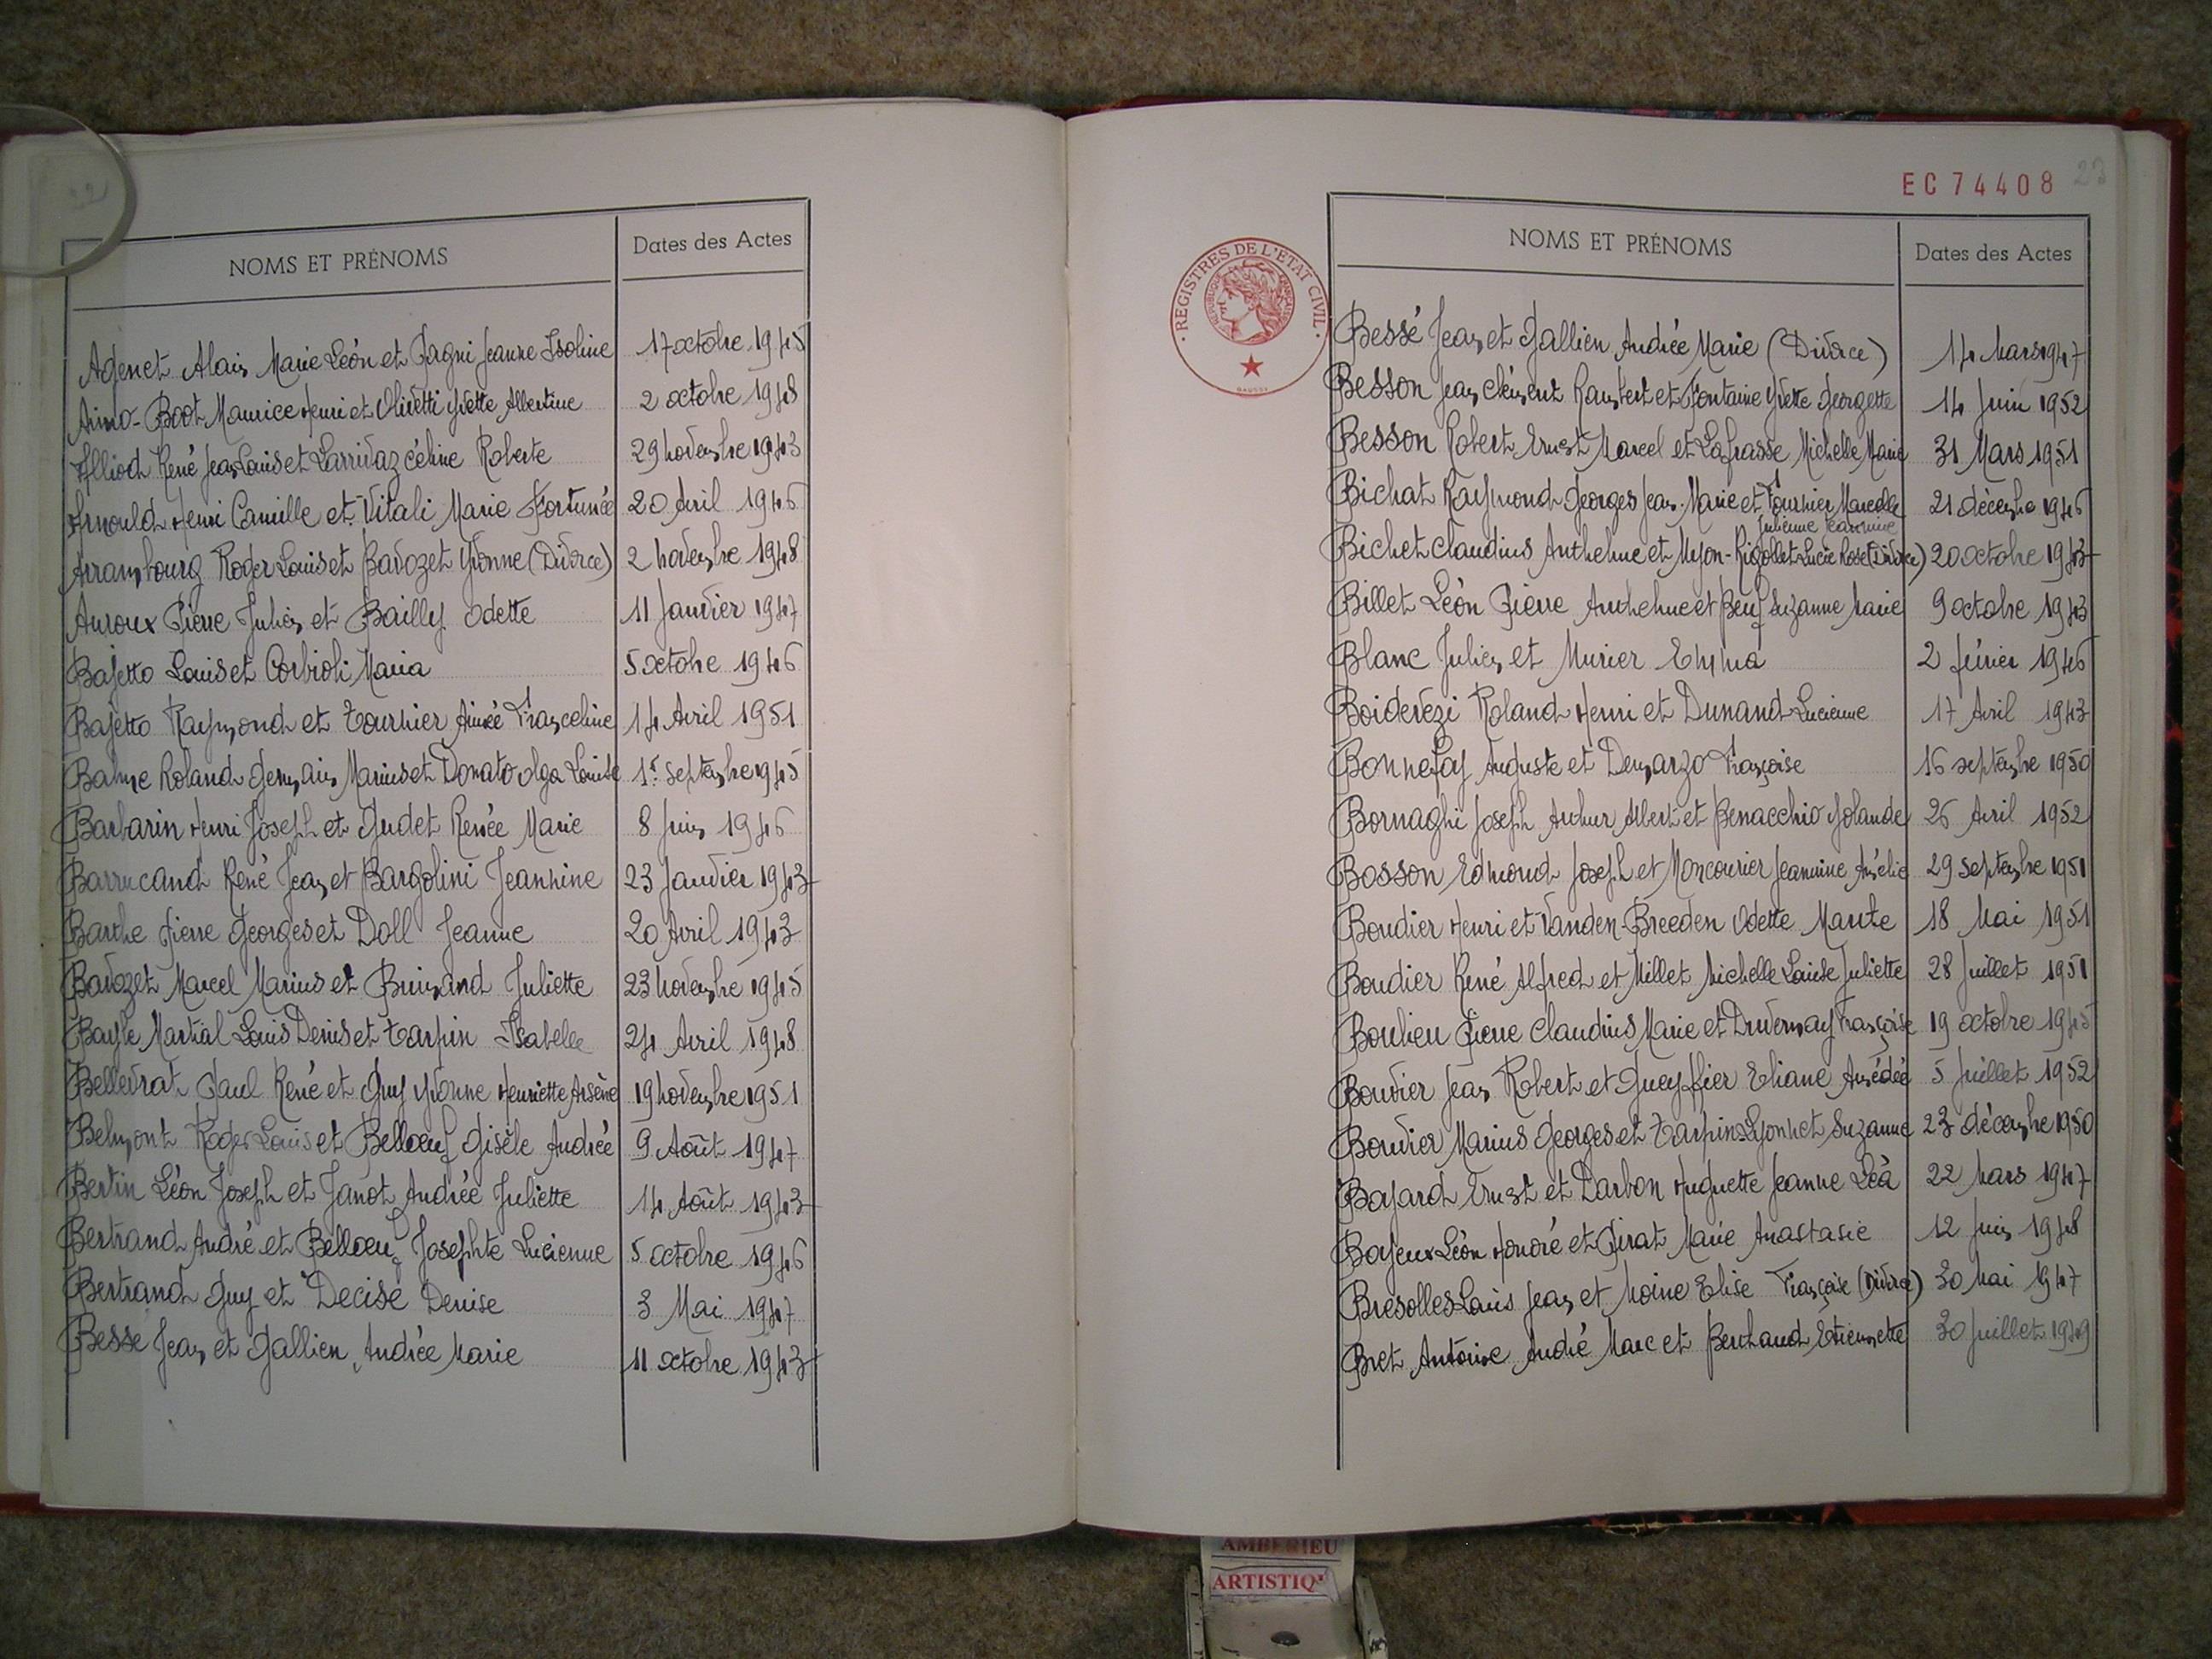 NOMS ET PRÉNOMS Dates des Actes
Agenet Alain Marie Léon et Pagni Jeanne Isoline 17 octobre 1945
Aimo-Boot Maurice Henri et Olivetti Yvette Albertine 2 octobre 1948
Alliod René Jean Louis et Larrivaz Céline Roberte 29 novembre 1943
Arnould Henri Camille et Vitali Marie Fortunée 20 Avril 1946
Arrambourg Roger Louis et Bavozet Yvonne (Divorce) 2 novembre 1948
Auroux Pierre Julien et Bailly Odette 11 Janvier 1947
Bajetto Louis et Corbioli Maria 5 octobre 1946
Bajetto Raymond et Tournier Aimée Franceline 14 Avril 1951
Balme Roland Germain Marius et Donato Olga Louise 1er septembre 1945
Barbarin Henri Joseph et Gudet Renée Marie 8 Juin 1946
Barrucand René Jean et Bargolini Jeannine 23 Janvier 1943
Barthe Pierre Georges et Doll Jeanne 20 Avril 1943
Bavozet Marcel Marius et Brinand Juliette 23 novembre 1945
Bayle Martial Louis Denis et Tarpin Isabelle 24 Avril 1948
Bellevrat Paul René et Guy Yvonne Henriette Arsène 19 novembre 1951
Belmont Roger Louis et Belloeuf Gisèle Andrée 9 Août 1947
Bertin Léon Joseph et Janot Andrée Juliette 14 Août 1943
Bertrand André et Belloeuf Josephte Lucienne 5 octobre 1946
Bertrand Guy et Decise Denise 3 Mai 1947
Besse Jean et Gallien Andrée Marie 11 octobre 1943
EC 74408 23
REGISTRES DE L'ÉTAT CIVIL
RÉPUBLIQUE FRANÇAISE
NOMS ET PRÉNOMS Dates des Actes
Bessé Jean et Gallien Andrée Marie (Divorce) 14 Mars 1947
Besson Jean Clément Rambert et Fontaine Yvette Georgette 14 Juin 1952
Besson Robert Ernest Marcel et Lafrasse Michelle Marie 31 Mars 1951
Bichat Raymond Georges Jean-Marie et Fournier Marcelle 21 décembre 1946
Julienne Jeannine
Bichet Claudius Anthelme et Myon-Rigollet Lucie Rose (Divorce) 20 octobre 1943
Billet Léon Pierre Anthelme et Beuf Suzanne Marie 9 octobre 1943
Blanc Julien et Murier Emma 2 février 1946
Boiderezi Roland Henri et Dunand Lucienne 17 Avril 1943
Bonnefoy Auguste et Demarzo Françoise 16 septembre 1950
Bornaghi Joseph Arthur Albert et Benacchio Yolande 26 Avril 1952
Bosson Edmond Joseph et Moncourier Jeannine Amélie 29 septembre 1951
Boudier Henri et Vanden-Breeden Odette Marthe 18 Mai 1951
Boudier René Alfred et Millet Michelle Louise Juliette 28 Juillet 1951
Boulieu Pierre Claudius Marie et Duvernay Françoise 19 octobre 1945
Bouvier Jean Robert et Gueyffier Eliane Amédée 5 Juillet 1952
Bouvier Marius Georges et Tarpin-Lyonnet Suzanne 23 décembre 1950
Boyard Ernest et Darbon Huguette Jeanne Léa 22 Mars 1947
Boyeux Léon Honoré et Pirat Marie Anastasie 12 Juin 1948
Bresolles Louis Jean et Moine Elise Françoise (Divorce) 30 Mai 1947
Bret Antoine André Marc et Berthaud Etiennette 30 Juillet 1949
AMBERIEU
ARTISTIQ